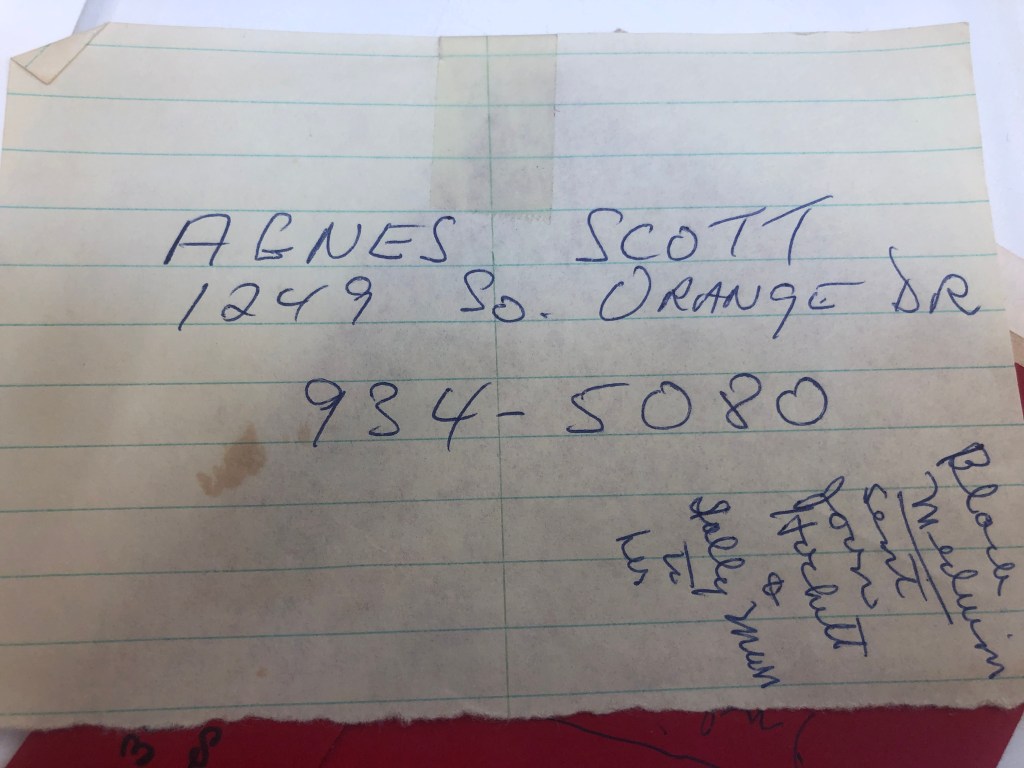 AGNES SCOTT
1249 So. ORANGE DR
934-5080
Black
Medium
sent
John
Hackett
&
Sally Mun
to
her